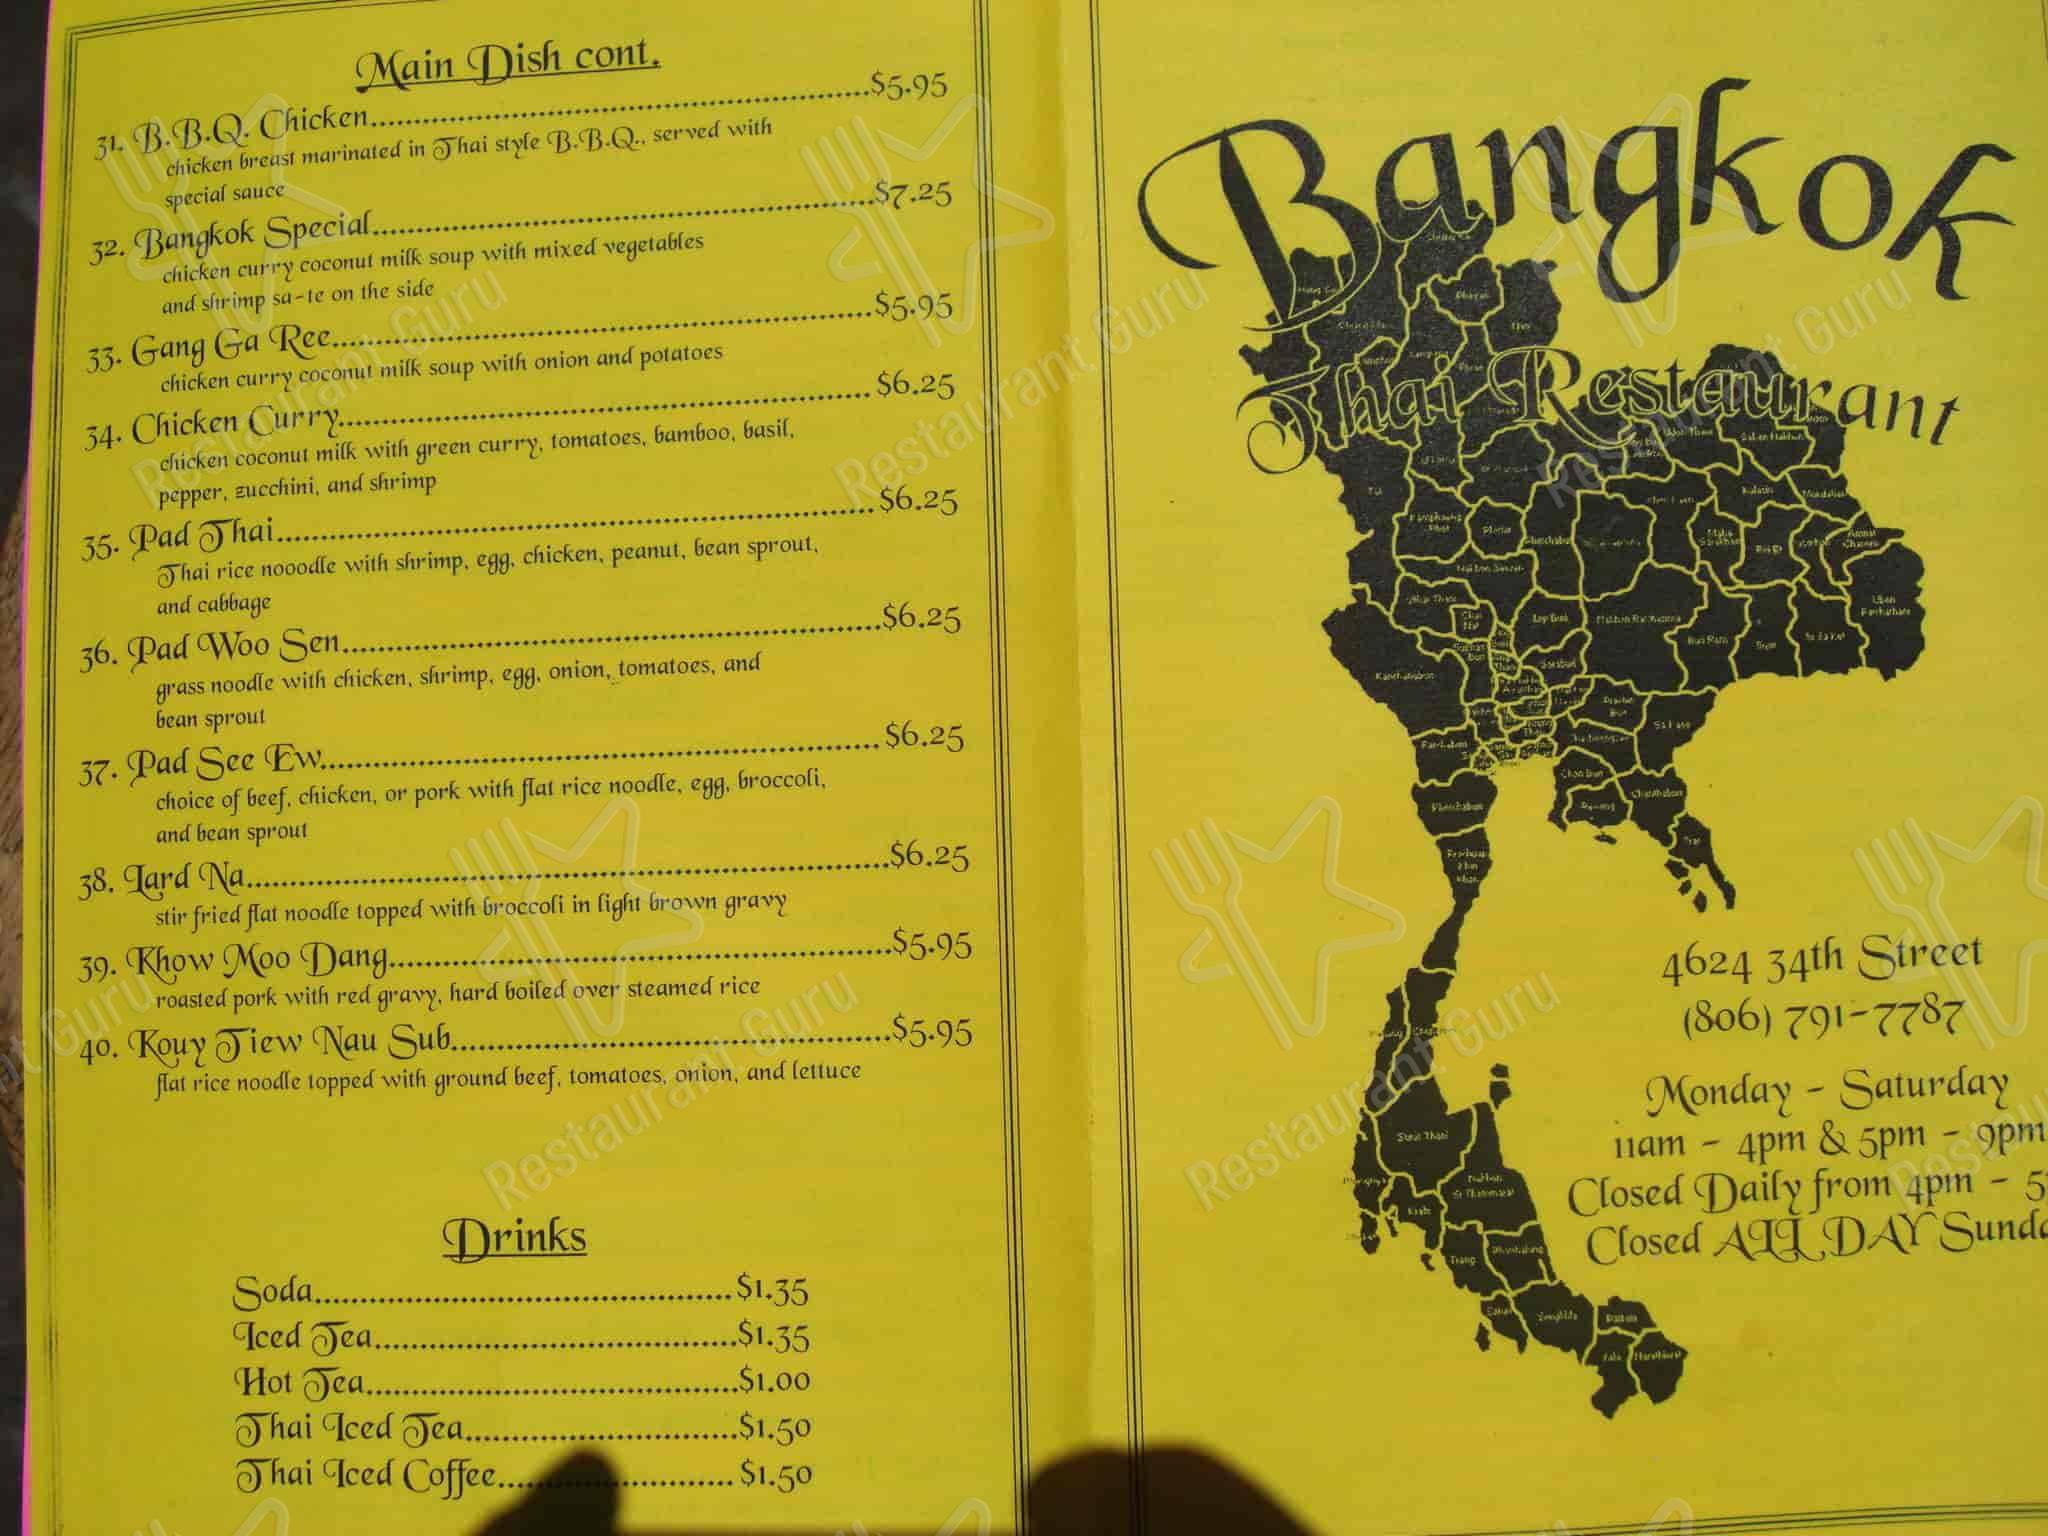 Main Dish cont.
31. B.B.Q. Chicken........$5.95
chicken breast marinated in Thai style B.B.Q., served with
special sauce
32. Bangkok Special........$7.25
chicken curry coconut milk soup with mixed vegetables
and shrimp sa-te on the side
33. Gang Ga Ree........$5.95
chicken curry coconut milk soup with onion and potatoes
34. Chicken Curry........$6.25
chicken coconut milk with green curry, tomatoes, bamboo, basil,
pepper, zucchini, and shrimp
35. Pad Thai........$6.25
Thai rice nooodle with shrimp, egg, chicken, peanut, bean sprout,
and cabbage
36. Pad Woo Sen........$6.25
grass noodle with chicken, shrimp, egg, onion, tomatoes, and
bean sprout
37. Pad See Ew........$6.25
choice of beef, chicken, or pork with flat rice noodle, egg, broccoli,
and bean sprout
38. Lard Na........$6.25
stir fried flat noodle topped with broccoli in light brown gravy
39. Khow Moo Dang........$5.95
roasted pork with red gravy, hard boiled over steamed rice
40. Kouy Tiew Nau Sub........$5.95
flat rice noodle topped with ground beef, tomatoes, onion, and lettuce
Drinks
Soda........$1.35
Iced Tea........$1.35
Hot Tea........$1.00
Thai Iced Tea........$1.50
Thai Iced Coffee........$1.50
Bangkok
Thai Restaurant
4624 34th Street
(806) 791-7787
Monday - Saturday
11am - 4pm & 5pm - 9pm
Closed Daily from 4pm - 5
Closed ALL DAY Sunda
Kanchanaburi
Surat Thani
Krabi
Trang
Restaurant Guru
Restaurant Guru
Restaurant Guru
Restaurant Guru
Restaurant Guru